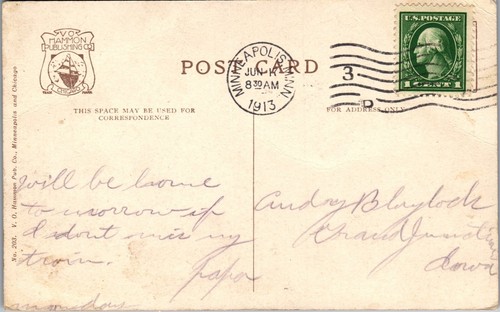 V.O.
HAMMON
PUBLISHING CO.
CHICAGO
TRADE MARK
POST CARD
MINNEAPOLIS, MINN
JUN
8 30 AM
1913
3
D
U.S. POSTAGE
1 CENT 1
THIS SPACE MAY BE USED FOR
CORRESPONDENCE
FOR ADDRESS ONLY
No. 203. V. O. Hammon Pub. Co., Minneapolis and Chicago
will be home
to morrow if
I dont mis my
train.
papa
monday
Audry Blaylock
Grand Junction
Iowa